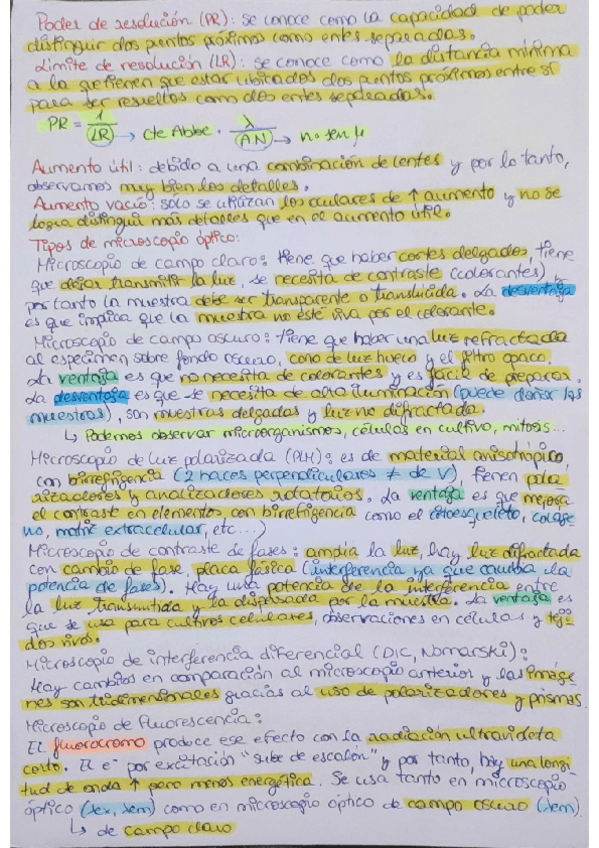 Poder de resolución (PR): se conoce como la capacidad de poder
distinguir dos puntos próximos como entes separados.
Límite de resolución (LR): se conoce como la distancia mínima
a la que tienen que estar ubicados dos puntos próximos entre sí
para ser resueltos como dos entes separados.
PR = 1/LR → cte Abbe · λ/AN → n·sen μ
Aumento útil: debido a una combinación de lentes y por lo tanto,
observamos muy bien los detalles.
Aumento vacío: solo se utilizan los oculares de ↑ aumento y no se
logra distinguir más detalles que en el aumento útil.
Tipos de microscopio óptico:
Microscopio de campo claro: tiene que haber cortes delgados, tiene
que dejar transmitir la luz, se necesita de contraste (colorantes),
por tanto la muestra debe ser transparente o translúcida. La desventaja
es que implica que la muestra no esté viva por el colorante.
Microscopio de campo oscuro: tiene que haber una luz refractada
al espécimen sobre fondo oscuro, cono de luz hueco y el filtro opaco.
La ventaja es que no necesita de colorantes y es fácil de preparar.
La desventaja es que se necesita de alta iluminación (puede dañar las
muestras), son muestras delgadas y luz no difractada.
↳ Podemos observar microorganismos, células en cultivo, mitosis...
Microscopio de luz polarizada (PLM): es de material anisotrópico,
con birrefigencia (2 haces perpendiculares ≠ de V), tienen pola
rizadores y analizadores rotatorios. La ventaja es que mejora
el contraste en elementos con birrefigencia como el citoesqueleto, coláge
no, matriz extracelular, etc...)
Microscopio de contraste de fases: amplía la luz, hay luz difractada
con cambio de fase, placa fásica (interferencia ya que cambia la
potencia de fases). Hay una potencia de la interferencia entre
la luz transmitida y la dispersada por la muestra. La ventaja es
que se usa para cultivos celulares, observaciones en células y teji
dos vivos.
Microscopio de interferencia diferencial (DIC, Nomarski):
Hay cambios en comparación al microscopio anterior y las imáge
nes son tridimensionales gracias al uso de polarizadores y prismas.
Microscopio de Fluorescencia:
El fluorocromo produce ese efecto con la radiación ultravioleta
corto. El e⁻ por excitación "sube de escalón" y por tanto, hay una longi
tud de onda ↑ pero menos energética. Se usa tanto en microscopio
óptico (λex, λem) como en microscopio óptico de campo oscuro (λem)
↳ de campo claro